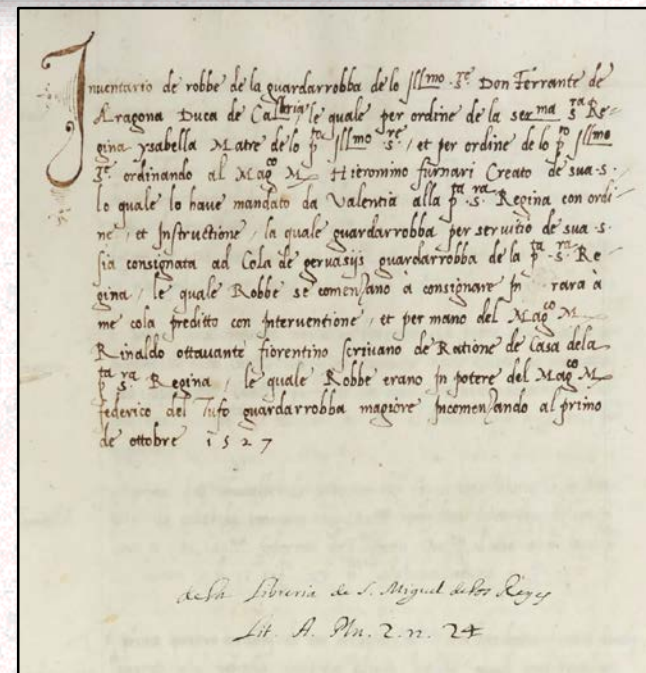 Inventario de robbe de la guardarrobba de lo Jllmo. Sre Don Ferrante de
Aragona Duca de Callbria, le quale per ordine de la serma sra Re-
gina ysabella Matre de lo pto Jllmo sre, et per ordine de lo pto Jllmo
Sre ordinando al Magco Mx Hieronimo furnari Creato de sua .s.
lo quale lo have mandato da Valentia alla pta .sra. Regina con ordi-
ne, et Jnstructione, la quale guardarrobba per servitio de sua .s.
sia consignata ad Cola de gervasijs guardarrobba de la pta .sra. Re-
gina, le quale Robbe se comenzano à consignare Jn rara à
me cola preditto con Jnterventione, et per mano del Magco Mx
Rinaldo ottavante fiorentino scrivano de Ratione de Casa de la
pta sra Regina, le quale Robbe erano Jn potere del Magco Mx
federico del Tufo guardarrobba magiore Jncomenzando al primo
de ottobre 1527
de la Libreria de S. Miguel de los Reyes
Lit. A. Plu. 2. n. 24